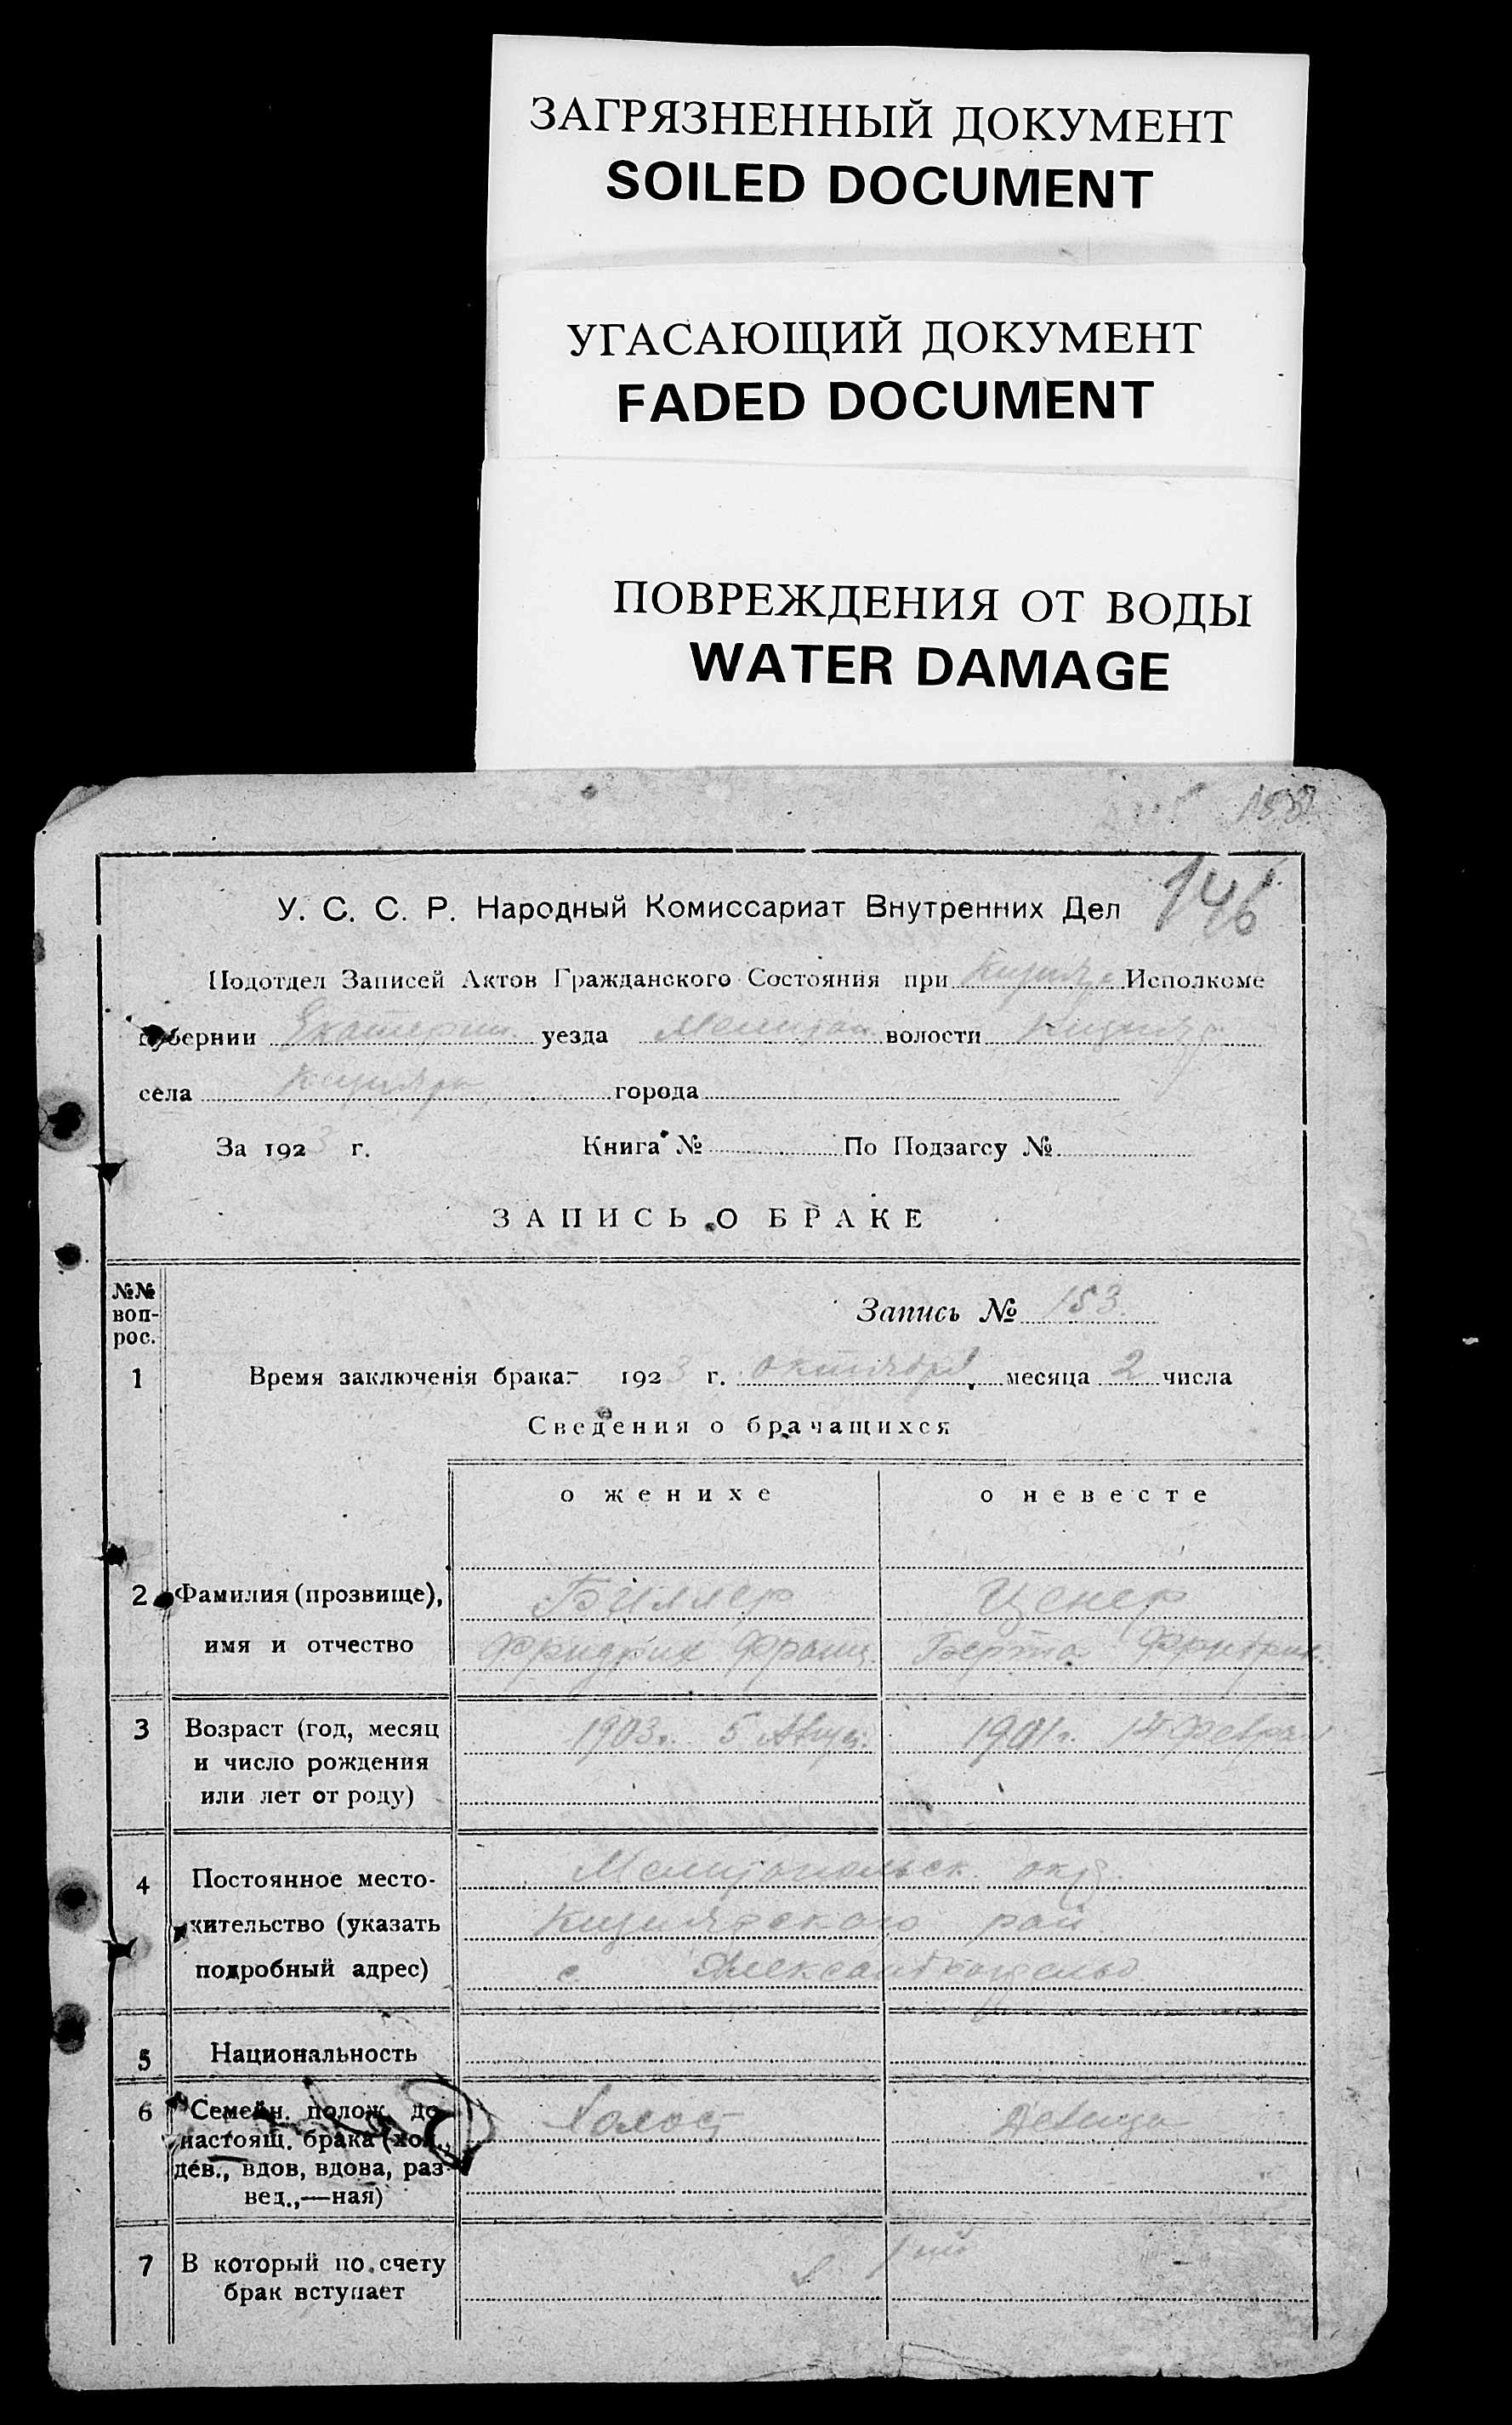 ЗАГРЯЗНЕННЫЙ ДОКУМЕНТ
SOILED DOCUMENT
УГАСАЮЩИЙ ДОКУМЕНТ
FADED DOCUMENT
ПОВРЕЖДЕНИЯ ОТ ВОДЫ
WATER DAMAGE
146
У. С. С. Р. Народный Комиссариат Внутренних Дел
Подотдел Записей Актов Гражданского Состояния при Исполкоме
губернии Екатерин. уезда волости
села города
За 1923 г. Книга № По Подзагсу №
ЗАПИСЬ О БРАКЕ
№№ воп- рос.
Запись № 153
1 Время заключенiя брака:- 1923 г. октября месяца 2 числа
Сведения о брачащихся
о женихе о невесте
2 Фамилия (прозвище), Биллер Ценер
имя и отчество Фридрих Франц. Берта Фридрих.
3 Возраст (год, месяц 1903г. 5 Авгус. 1901г. 14 Феврал
и число рождения
или лет от роду)
4 Постоянное место- Мелитопольск. окр.
жительство (указать Кизиярского рай.
подробный адрес) с.
5 Национальность
6 Семейн. полож. до Холост Девица
настоящ. брака (хол.,
дев., вдов, вдова, раз-
вед.,—ная)
7 В который по счету
брак вступает